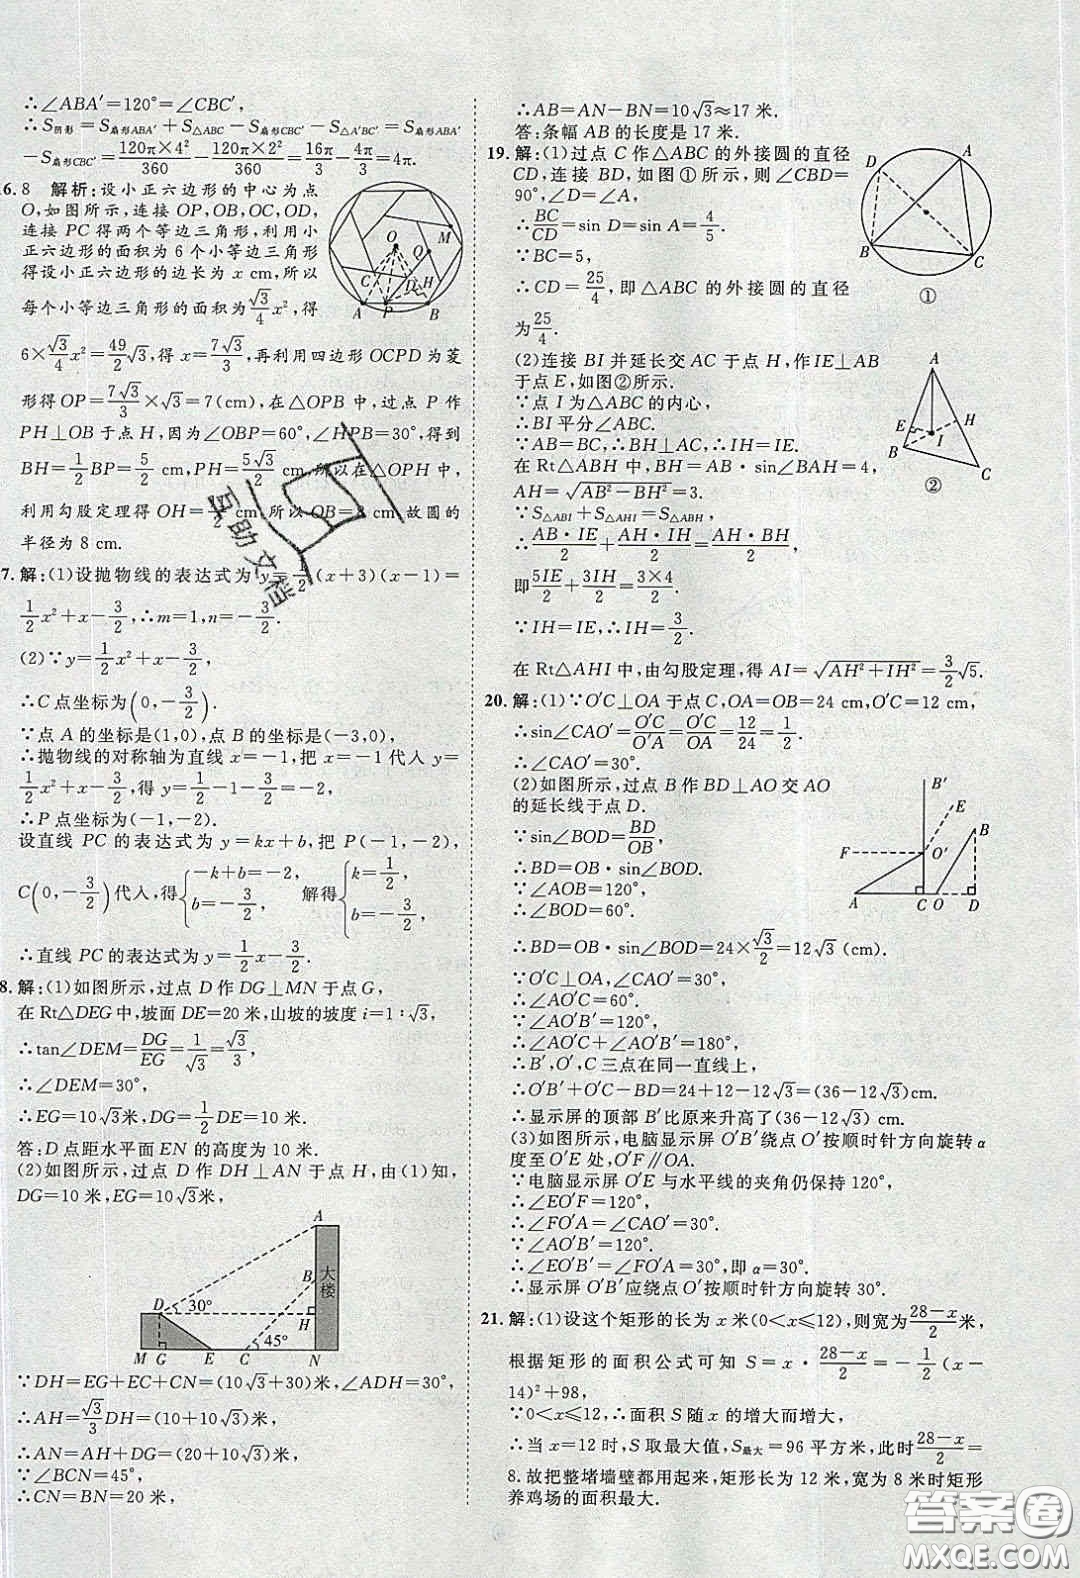 ∴∠ABA′=120°=∠CBC′,
∴S阴影=S扇形ABA′+S△ABC-S扇形CBC′-S△A′BC′=S扇形ABA′
-S扇形CBC′=120π×4²/360-120π×2²/360=16π/3-4π/3=4π.
6. 8 解析:设小正六边形的中心为点
O,如图所示,连接OP,OB,OC,OD,
连接PC得两个等边三角形,利用小
正六边形的面积为6个小等边三角形
得设小正六边形的边长为x cm,则
每个小等边三角形的面积为√3/4x²,得
6×√3/4x²=49/2√3,得x=7√3/3,再利用四边形OCPD为菱
形得OP=7√3/3×√3=7(cm),在△OPB中,过点P作
PH⊥OB于点H,因为∠OBP=60°,∠HPB=30°,得到
BH=1/2BP=5/2 cm,PH=5√3/2 cm,所以在△OPH中,
利用勾股定理得OH=11/2 cm,所以OB=8 cm,故圆的
半径为8 cm.
O
M
Q
D
H
C
A
P
B
7. 解:(1)设抛物线的表达式为y=1/2(x+3)(x-1)=
1/2x²+x-3/2,∴m=1,n=-3/2.
(2)∵y=1/2x²+x-3/2,
∴C点坐标为(0,-3/2).
∵点A的坐标为(1,0),点B的坐标为(-3,0),
∴抛物线的对称轴为直线x=-1,把x=-1代入y=
1/2x²+x-3/2,得y=1/2-1-3/2=-2,
∴P点坐标为(-1,-2).
设直线PC的表达式为y=kx+b,把P(-1,-2),
C(0,-3/2)代入,得{-k+b=-2, b=-3/2, 解得{k=1/2, b=-3/2.
∴直线PC的表达式为y=1/2x-3/2.
8. 解:(1)如图所示,过点D作DG⊥MN于点G,
在Rt△DEG中,坡面DE=20米,山坡的坡度i=1∶√3,
∴tan∠DEM=DG/EG=1/√3=√3/3,
∴∠DEM=30°,
∴EG=10√3米,DG=1/2DE=10米.
答:D点距水平面EN的高度为10米.
(2)如图所示,过点D作DH⊥AN于点H,由(1)知,
DG=10米,EG=10√3米,
A
B
大楼
D
30°
H
45°
M G E C N
∵DH=EG+EC+CN=(10√3+30)米,∠ADH=30°,
∴AH=√3/3DH=(10+10√3)米,
∴AN=AH+DG=(20+10√3)米,
∵∠BCN=45°,
∴CN=BN=20米,
∴AB=AN-BN=10√3≈17米.
答:条幅AB的长度是17米.
19. 解:(1)过点C作△ABC的外接圆的直径
CD,连接BD,如图①所示,则∠CBD=
90°,∠D=∠A,
∴BC/CD=sin D=sin A=4/5.
∵BC=5,
∴CD=25/4,即△ABC的外接圆的直径
为25/4.
D
A
B
C
①
(2)连接BI并延长交AC于点H,作IE⊥AB
于点E,如图②所示.
∵点I为△ABC的内心,
∴BI平分∠ABC.
∵AB=BC,∴BH⊥AC,∴IH=IE.
在Rt△ABH中,BH=AB·sin∠BAH=4,
AH=√AB²-BH²=3.
∵S△ABI+S△AHI=S△ABH,
∴AB·IE/2+AH·IH/2=AH·BH/2,
即5IE/2+3IH/2=3×4/2.
∵IH=IE,∴IH=3/2.
在Rt△AHI中,由勾股定理,得AI=√AH²+IH²=3/2√5.
A
E
H
I
B
C
②
20. 解:(1)∵O′C⊥OA于点C,OA=OB=24 cm,O′C=12 cm,
∴sin∠CAO′=O′C/O′A=O′C/OA=12/24=1/2,
∴∠CAO′=30°.
(2)如图所示,过点B作BD⊥AO交AO
的延长线于点D.
∵sin∠BOD=BD/OB,
∴BD=OB·sin∠BOD.
∵∠AOB=120°,
∴∠BOD=60°,
∴BD=OB·sin∠BOD=24×√3/2=12√3 (cm).
∵O′C⊥OA,∠CAO′=30°,
∴∠AO′C=60°.
∵∠AO′B′=120°,
∴∠AO′C+∠AO′B′=180°.
∴B′,O′,C三点在同一直线上.
∴O′B′+O′C-BD=24+12-12√3=(36-12√3)cm.
∴显示屏的顶部B′比原来升高了(36-12√3) cm.
(3)如图所示,电脑显示屏O′B′绕点O′按顺时针方向旋转α
度至O′E处,O′F∥OA.
∵电脑显示屏O′E与水平线的夹角仍保持120°,
∴∠EO′F=120°.
∴∠FO′A=∠CAO′=30°.
∵∠AO′B′=120°.
∴∠EO′B′=∠FO′A=30°,即α=30°.
∴显示屏O′B′应绕点O′按顺时针方向旋转30°.
B′
E
B
F
O′
A
C O D
21. 解:(1)设这个矩形的长为x米(0<x≤12),则宽为28-x/2米,
根据矩形的面积公式可知S=x·28-x/2=-1/2(x-
14)²+98,
∵0<x≤12,∴面积S随x的增大而增大,
∴当x=12时,S取最大值,S最大=96平方米,此时28-x/2=
8.故把整堵墙壁都用起来,矩形长为12米,宽为8米时矩形
养鸡场的面积最大.
互助文档
答案圈
MXQE.COM